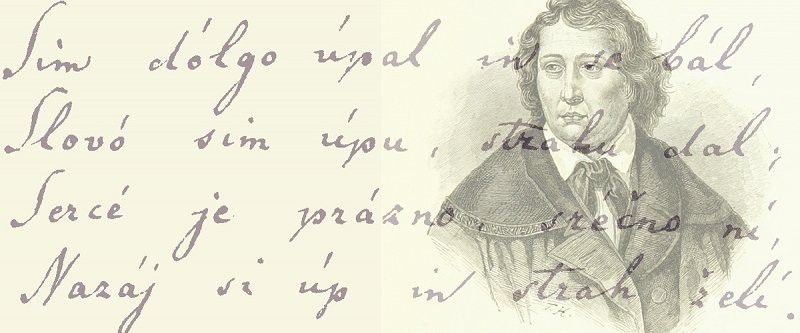 Sim dólgo úpal in se bál,
Slovó sim úpu, strahu dal;
Sercé je prázno, sréčno ni,
Nazáj si úp in strah želí.